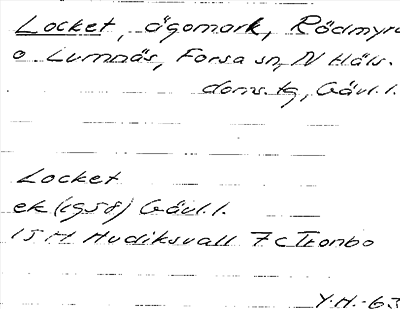 Locket, ägomark, Rödmyra
o. Lumnäs, Forsa sn, N Häls.
doms.tg, Gävl.l.
Locket
ek (1958) Gävl.l.
15H Hudiksvall 7c Tronbo
Y.H.-63